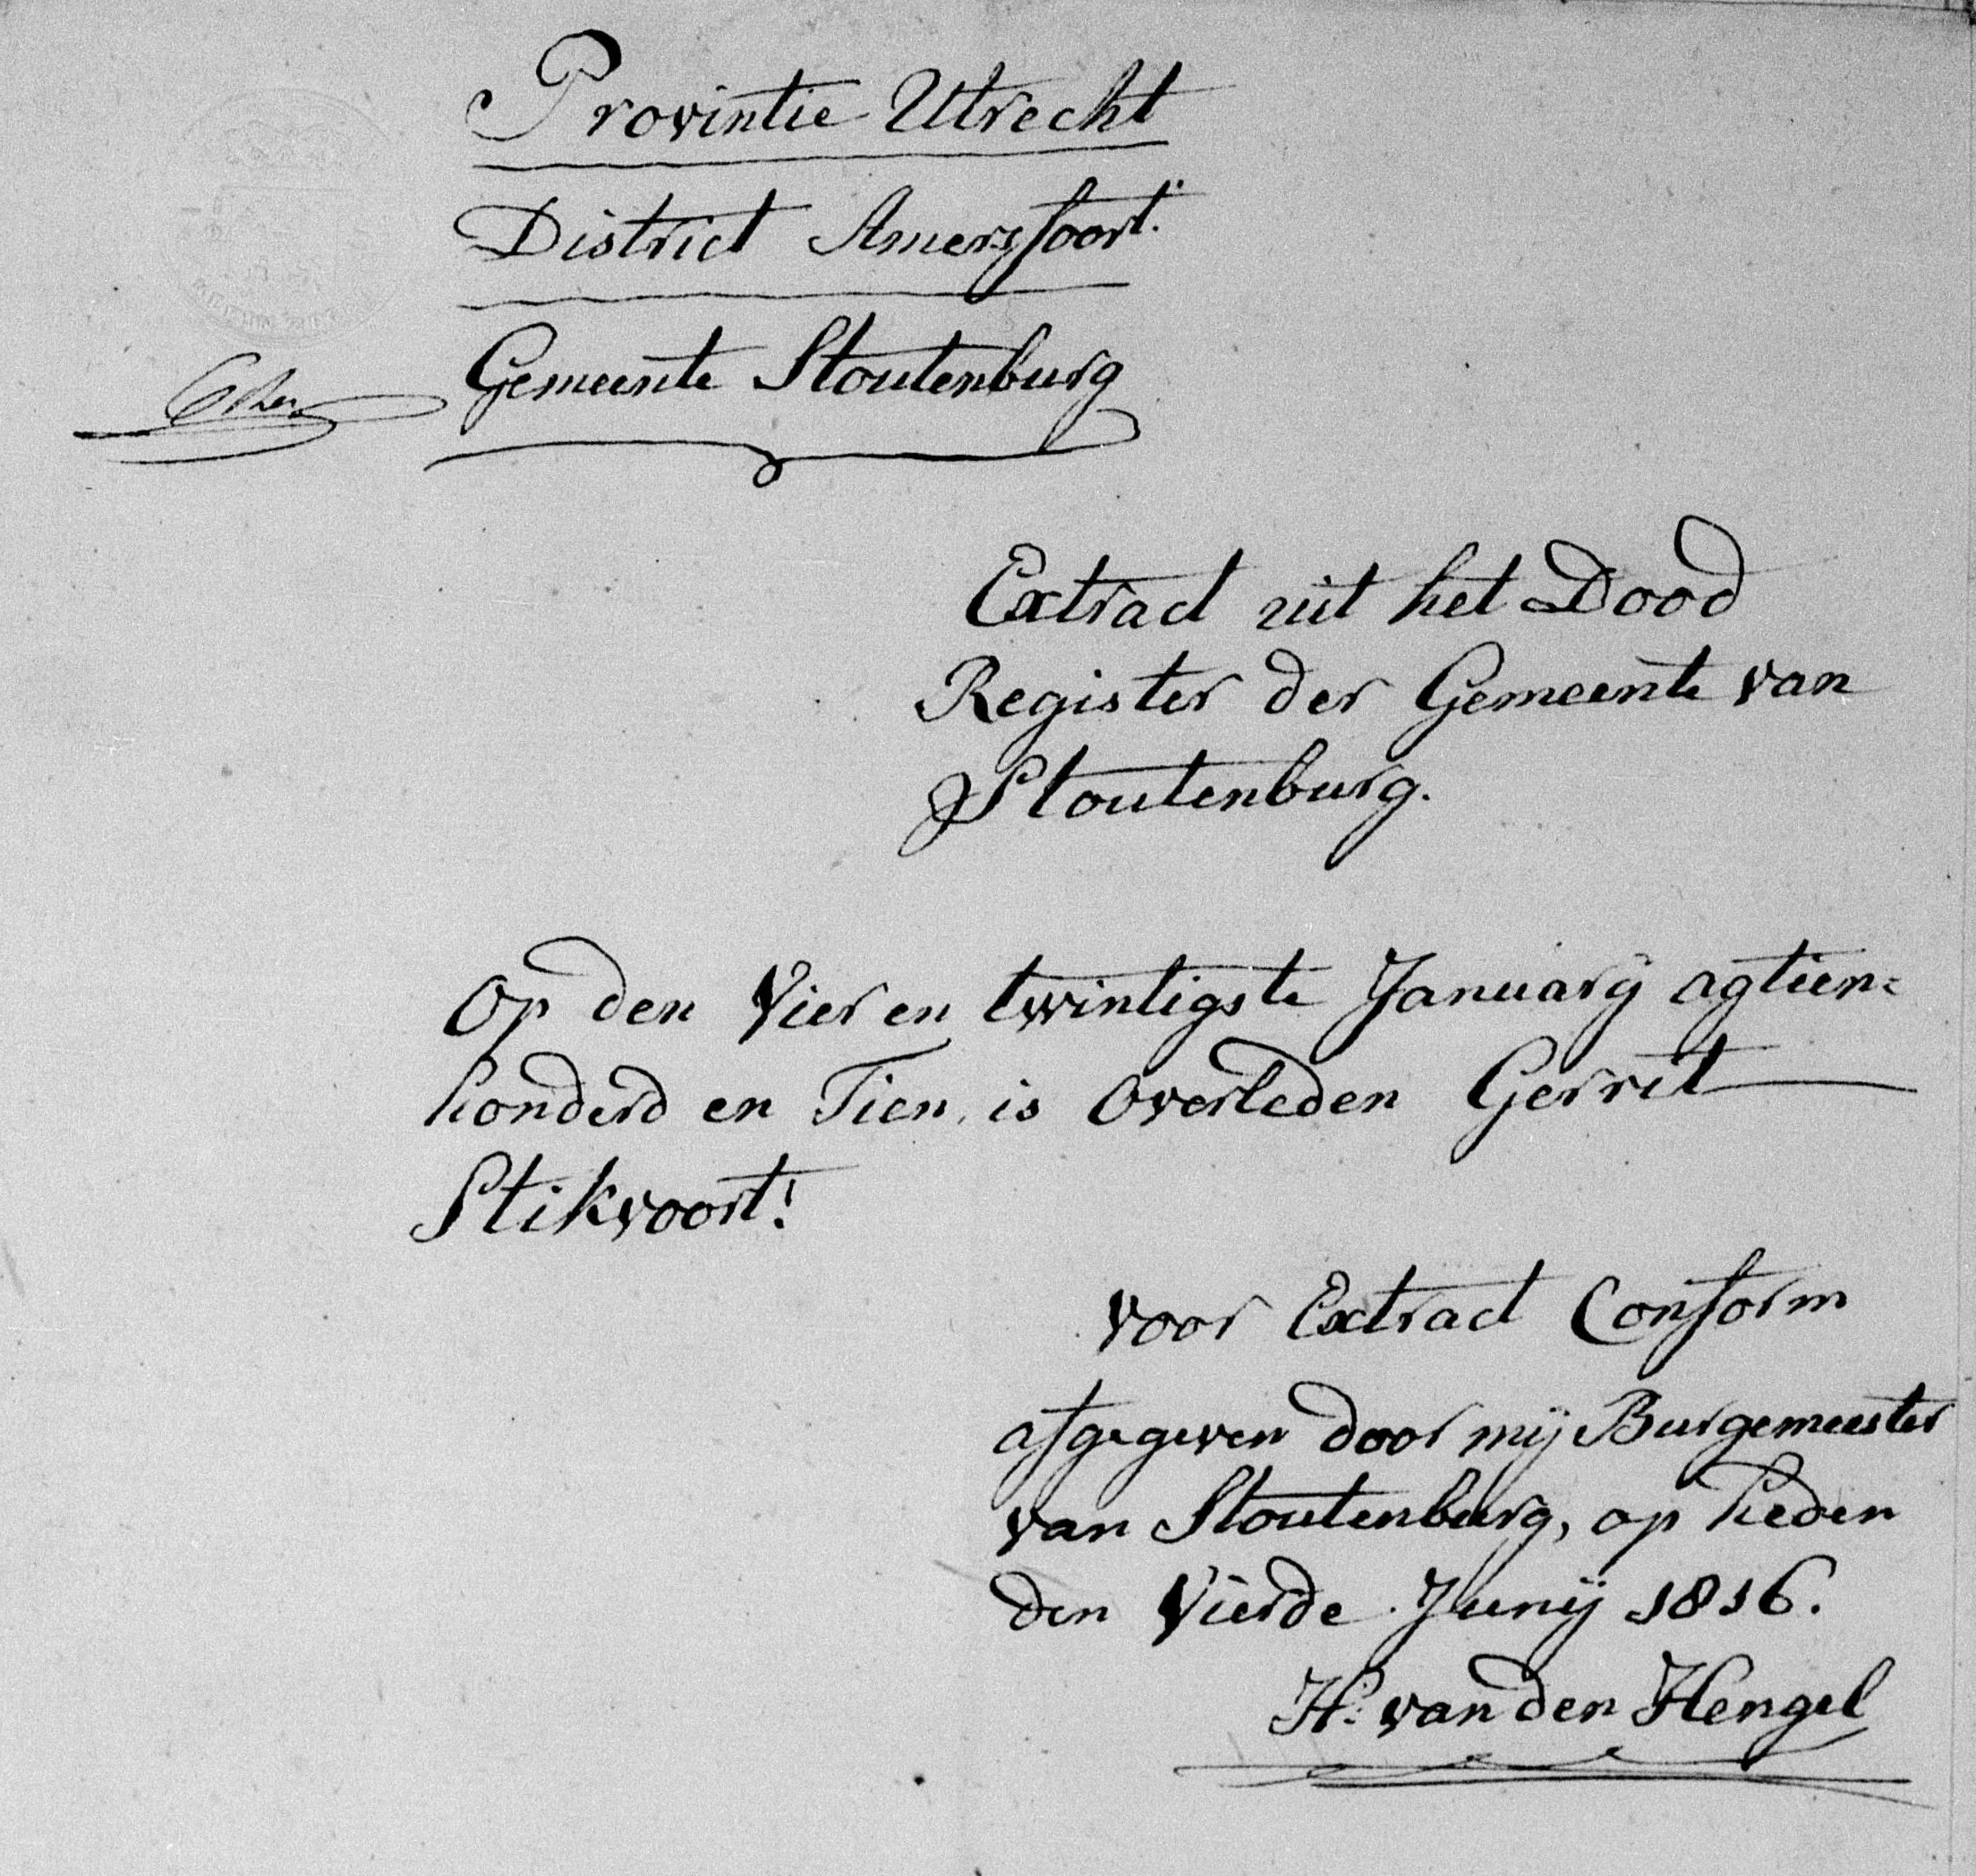 Provintie Utrecht
District Amersfoort.
Gemeente Stoutenburg
Extract uit het Dood
Register der Gemeente van
Stoutenburg.
Op den Vier en twintigste Januarij agtien=
honderd en Tien, is Overleden Gerrit
Stikvoort!
voor Extract Conform
afgegeven door mij Burgemeester
van Stoutenburg, op heden
den Vierde Junij 1816.
H. van den Hengel